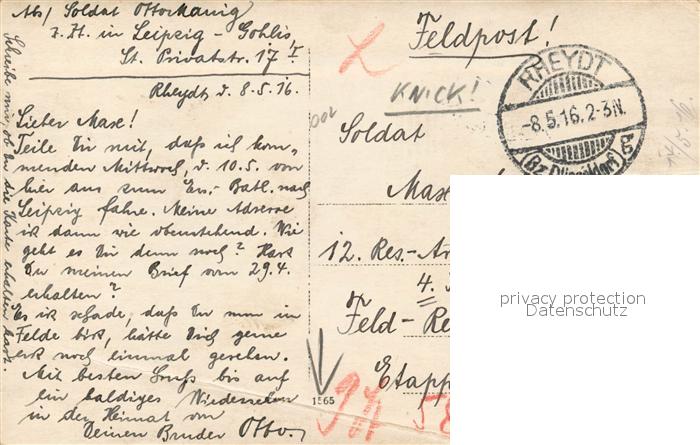 Abs/ Soldat Otto
z. Zt. in Leipzig - Gohlis
St. Privatstr. 17 I
Rheydt d. 8-5.16.
Lieber Max!
Teile Dir mit, daß ich kom-
menden Mittwoch, d. 10.5. von
hier aus zum Ers.- Batl. nach
Leipzig fahre. Meine Adresse
ist dann wie obenstehend. Wie
geht es Dir denn noch? Hast
Du meinen Brief vom 29.4.
erhalten?
Es ist schade, daß Du nun im
Felde bist, hätte Dich gerne
erst noch einmal gesehen.
Mit besten Gruß bis auf
ein baldiges Wiedersehen
in der Heimat von
Deinen Bruder Otto.
Schreibe mir, ob Du die Karte erhalten hast.
Feldpost!
KNICK!
RHEYDT
-8.5.16.2-3N.
(Bz. Düsseldorf)
Soldat
Max
12. Res.-
4.
Feld-
Etapp
1565
58
privacy protection
Datenschutz